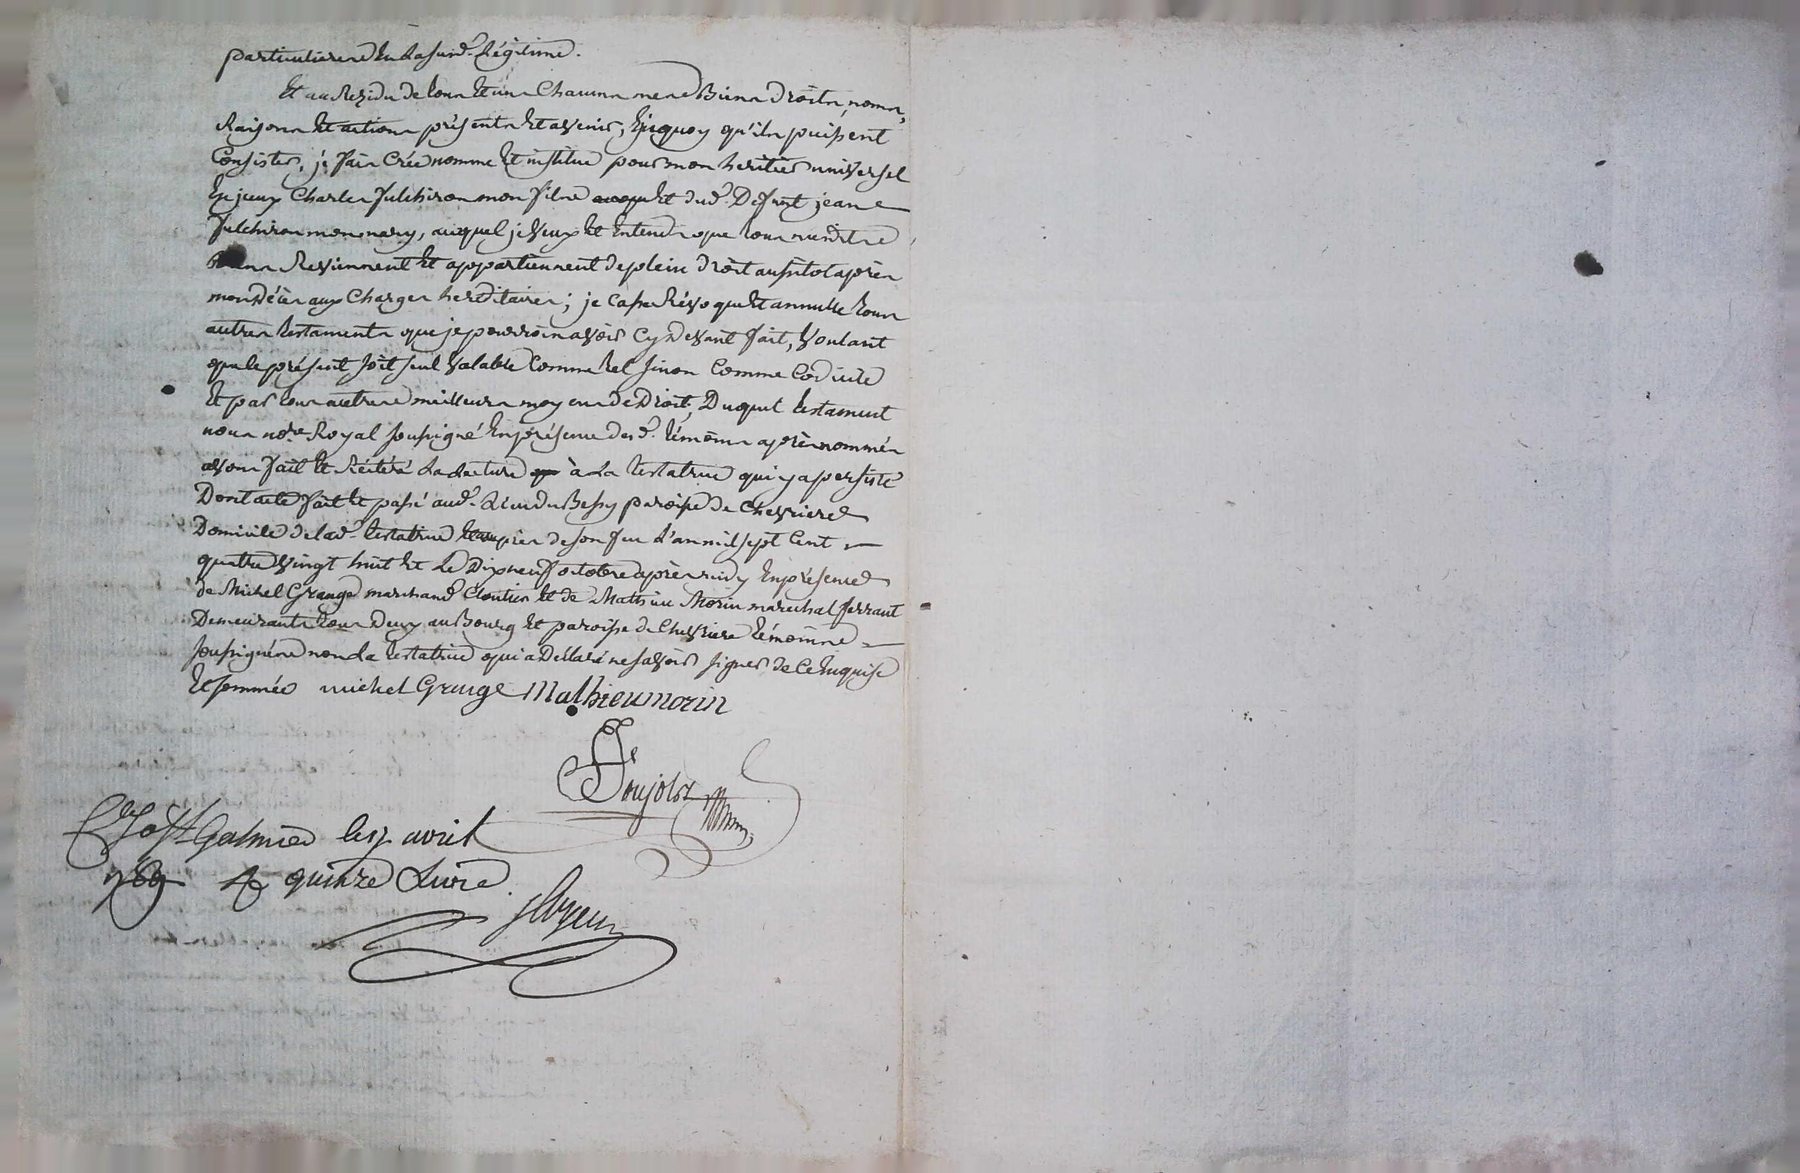 particuliere en lad. Légitime.
Et au Rezidu de tous et un Chacuns mes Biens droits, noms,
Raisons et actions présents et avenir, En quoy qu'ils puissent
Consister, je fais Créé nomme et institue pour mon heritier universel
Charles fulchiron mon fils et dud. Defunt jean
fulchiron mon mary, auquel je Veux et Entends que tous mesd.
biens Reviennent et appartiennent de plein droit aussitot après
mon Décès aux Charges hereditaires; je Casse Révoque et annulle tous
autres testaments que je pourrois avoir Cy Devant fait, Voulant
que le présent soit seul Valable Comme tel sinon Comme Codicile
Et par tous autres meilleurs moyens de Droit; Duquel testament
nous no.re Royal soussigné En présence des d. témoins après nommés
avons fait et Réitéré La Lecture à La testatrice qui y a persisté
Dont acte fait et passé aud. Lieu du Bessy paroisse de Chevrieres
Domicile de lad. testatrice auprès de son feu L'an mil sept Cent
quattre Vingt huit et Le Dix neuf octobre après midy En présence
de Michel Grange marchand Cloutier et de Mathieu Morin marechal ferrant
Demeurants tous Deux au Bourg et paroisse de Chevriere témoins
soussignés non La testatrice qui a Déclaré ne savoir signer de Ce Enquise
Et sommée michel Grange Mathieu morin
Pujolz
à St Galmier le avril
1789 quinze Livres